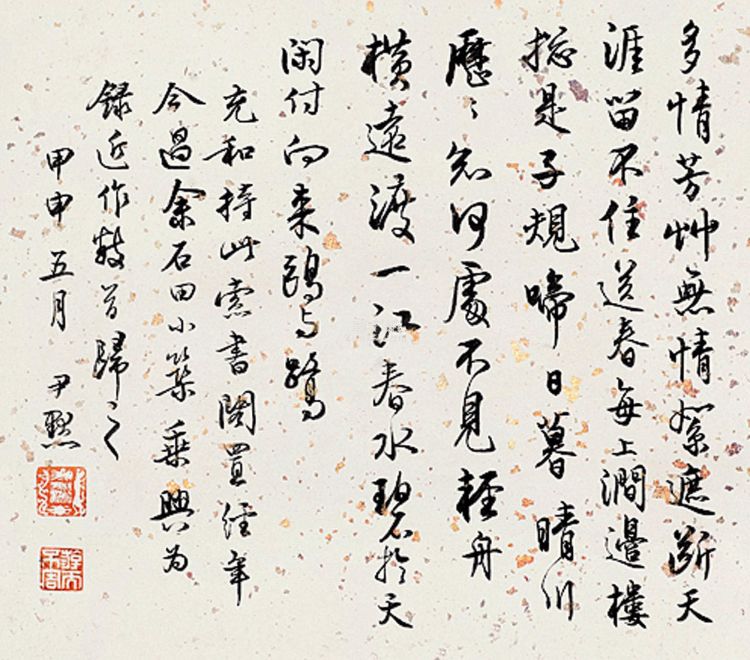 多情芳艸無情絮遮斷天
涯留不住送春每上澗邊樓
揔是子規啼日暮晴川
歷〻知何處不見輕舟
橫遠渡一江春水碧於天
閑付向來鷗与鷺
充和持此索書閣置經年
今過余石田小築乘興为
録近作數首歸之
甲申五月 尹默